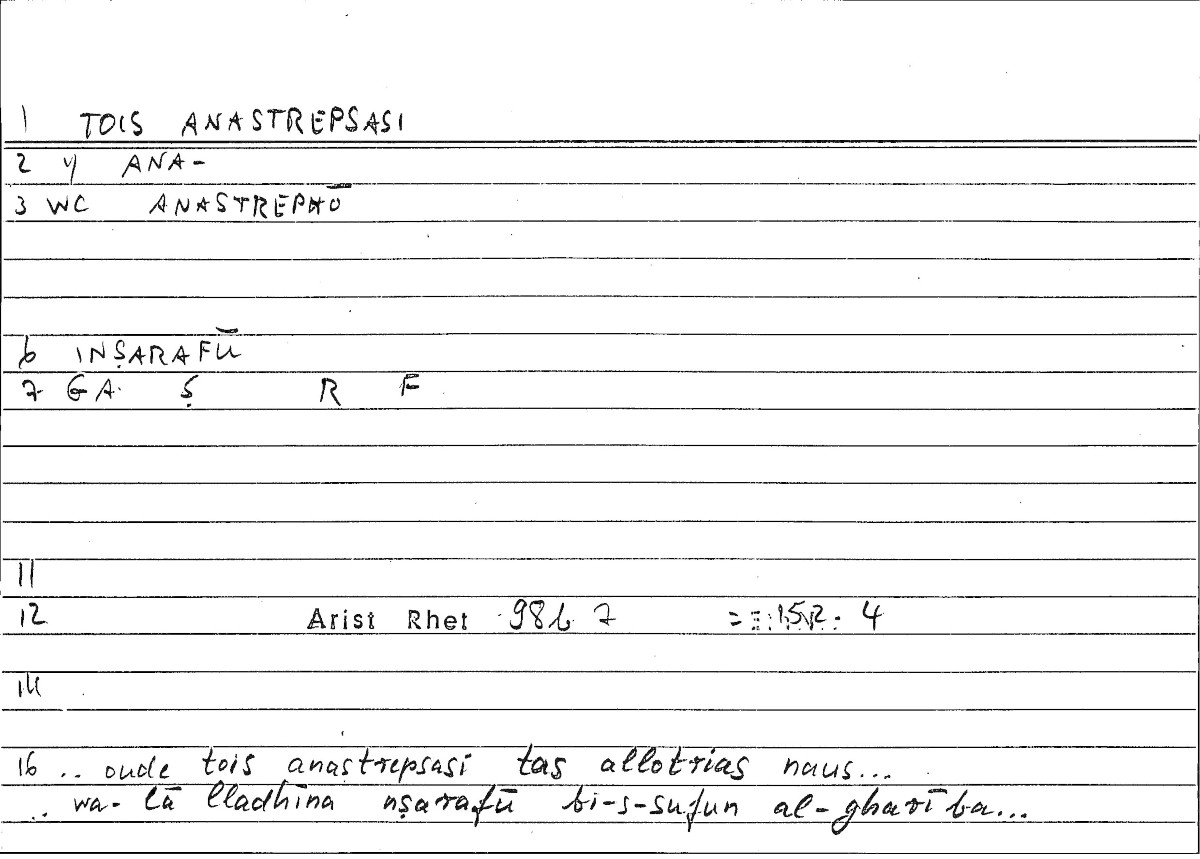 1 TOIS ANASTREPSASI
2 y ANA-
3 WC ANASTREPHŌ
6 INṢARAFŪ
7 GA. Ṣ R F
11
12 Arist Rhet 98b 7 = 152. 4
14
16 .. oude tois anastrepsasi tas allotrias naus...
.. wa-lā lladhīna nṣarafū bi-s-sufun al-gharība...